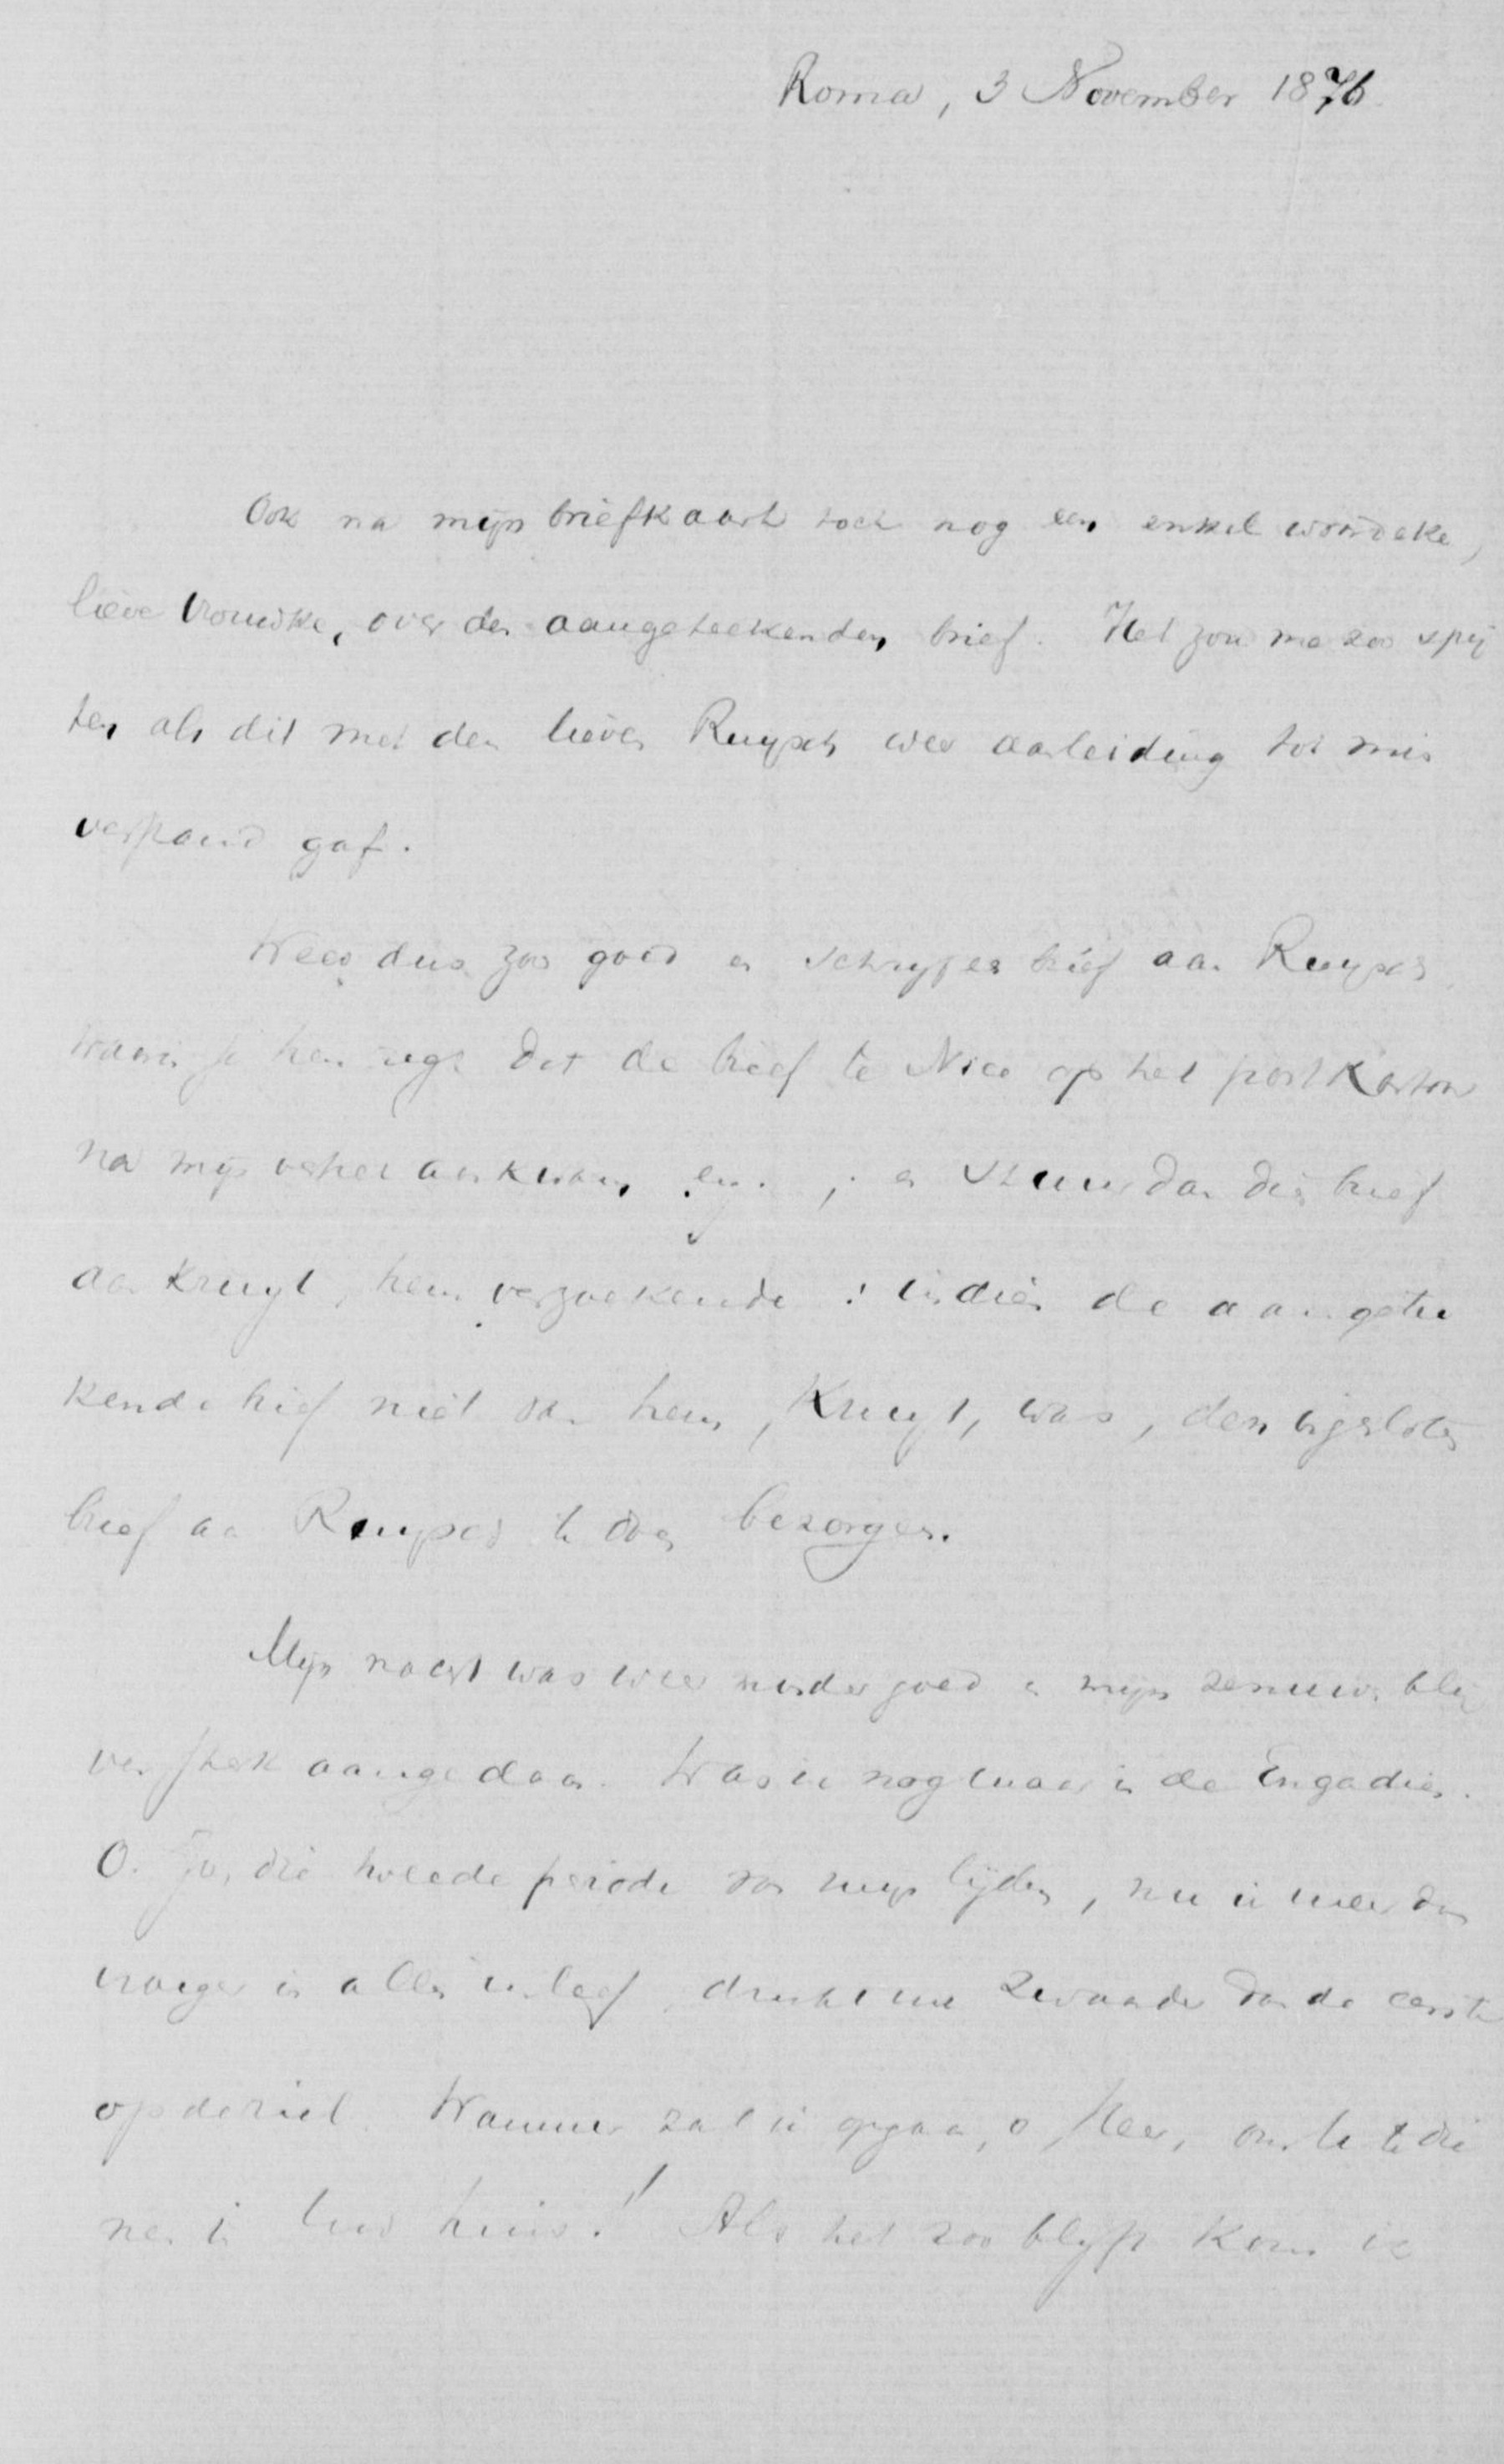 Roma, 3 November 1876.
Ook na mijn briefkaart toch nog een enkel woordeke,
lieve vrouwke, over den aangeteekenden brief. Het zou me zoo spij
ten als dit met den lieven Ruysch weer aanleiding tot mis
verstand gaf.
Wees dus zoo goed en schrijf een brief aan Ruysch
waarin je hem zegt dat de brief te Nice op het postkantoor
na mijn vertrek aankwam, enz. ; en stuur dan dien brief
aan Kruyt, hem verzoekende : indien de aangetee
kende brief niet van hem, Kruyt, was, den bijgesloten
brief aan Ruysch te doen bezorgen.
Mijn nacht was weer minder goed en mijn zenuwen blij
ven sterk aangedaan. Was ik nog maar in de Engadien.
O. Jo, die tweede periode van mijn lijden, nu ik meer dan
vroeger in alles inleef, drukt me zwaarder dan de eerste
op de ziel. Wanneer zal ik opgaan, o Heer, om U te die
nen in Uw huis! Als het zoo blijft kom ik